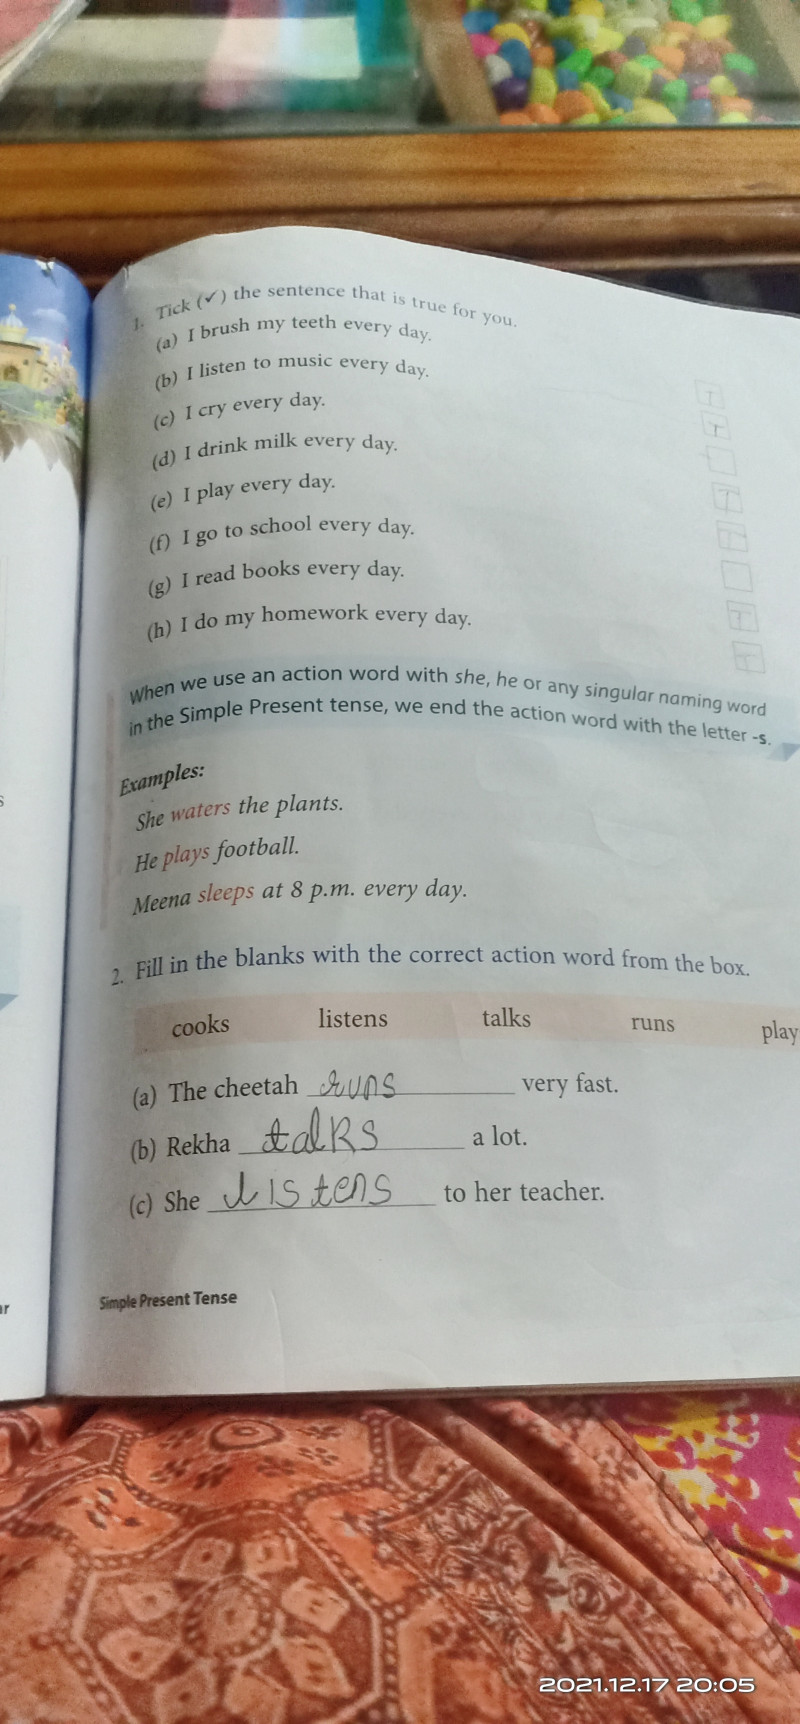 1. Tick (✓) the sentence that is true for you.
(a) I brush my teeth every day. T
(b) I listen to music every day. T
(c) I cry every day.
(d) I drink milk every day. T
(e) I play every day. T
(f) I go to school every day.
(g) I read books every day. T
(h) I do my homework every day. T
When we use an action word with she, he or any singular naming word
in the Simple Present tense, we end the action word with the letter -s.
Examples:
She waters the plants.
He plays football.
Meena sleeps at 8 p.m. every day.
2. Fill in the blanks with the correct action word from the box.
cooks listens talks runs play
(a) The cheetah runs very fast.
(b) Rekha talks a lot.
(c) She listens to her teacher.
Simple Present Tense
2021.12.17 20:05